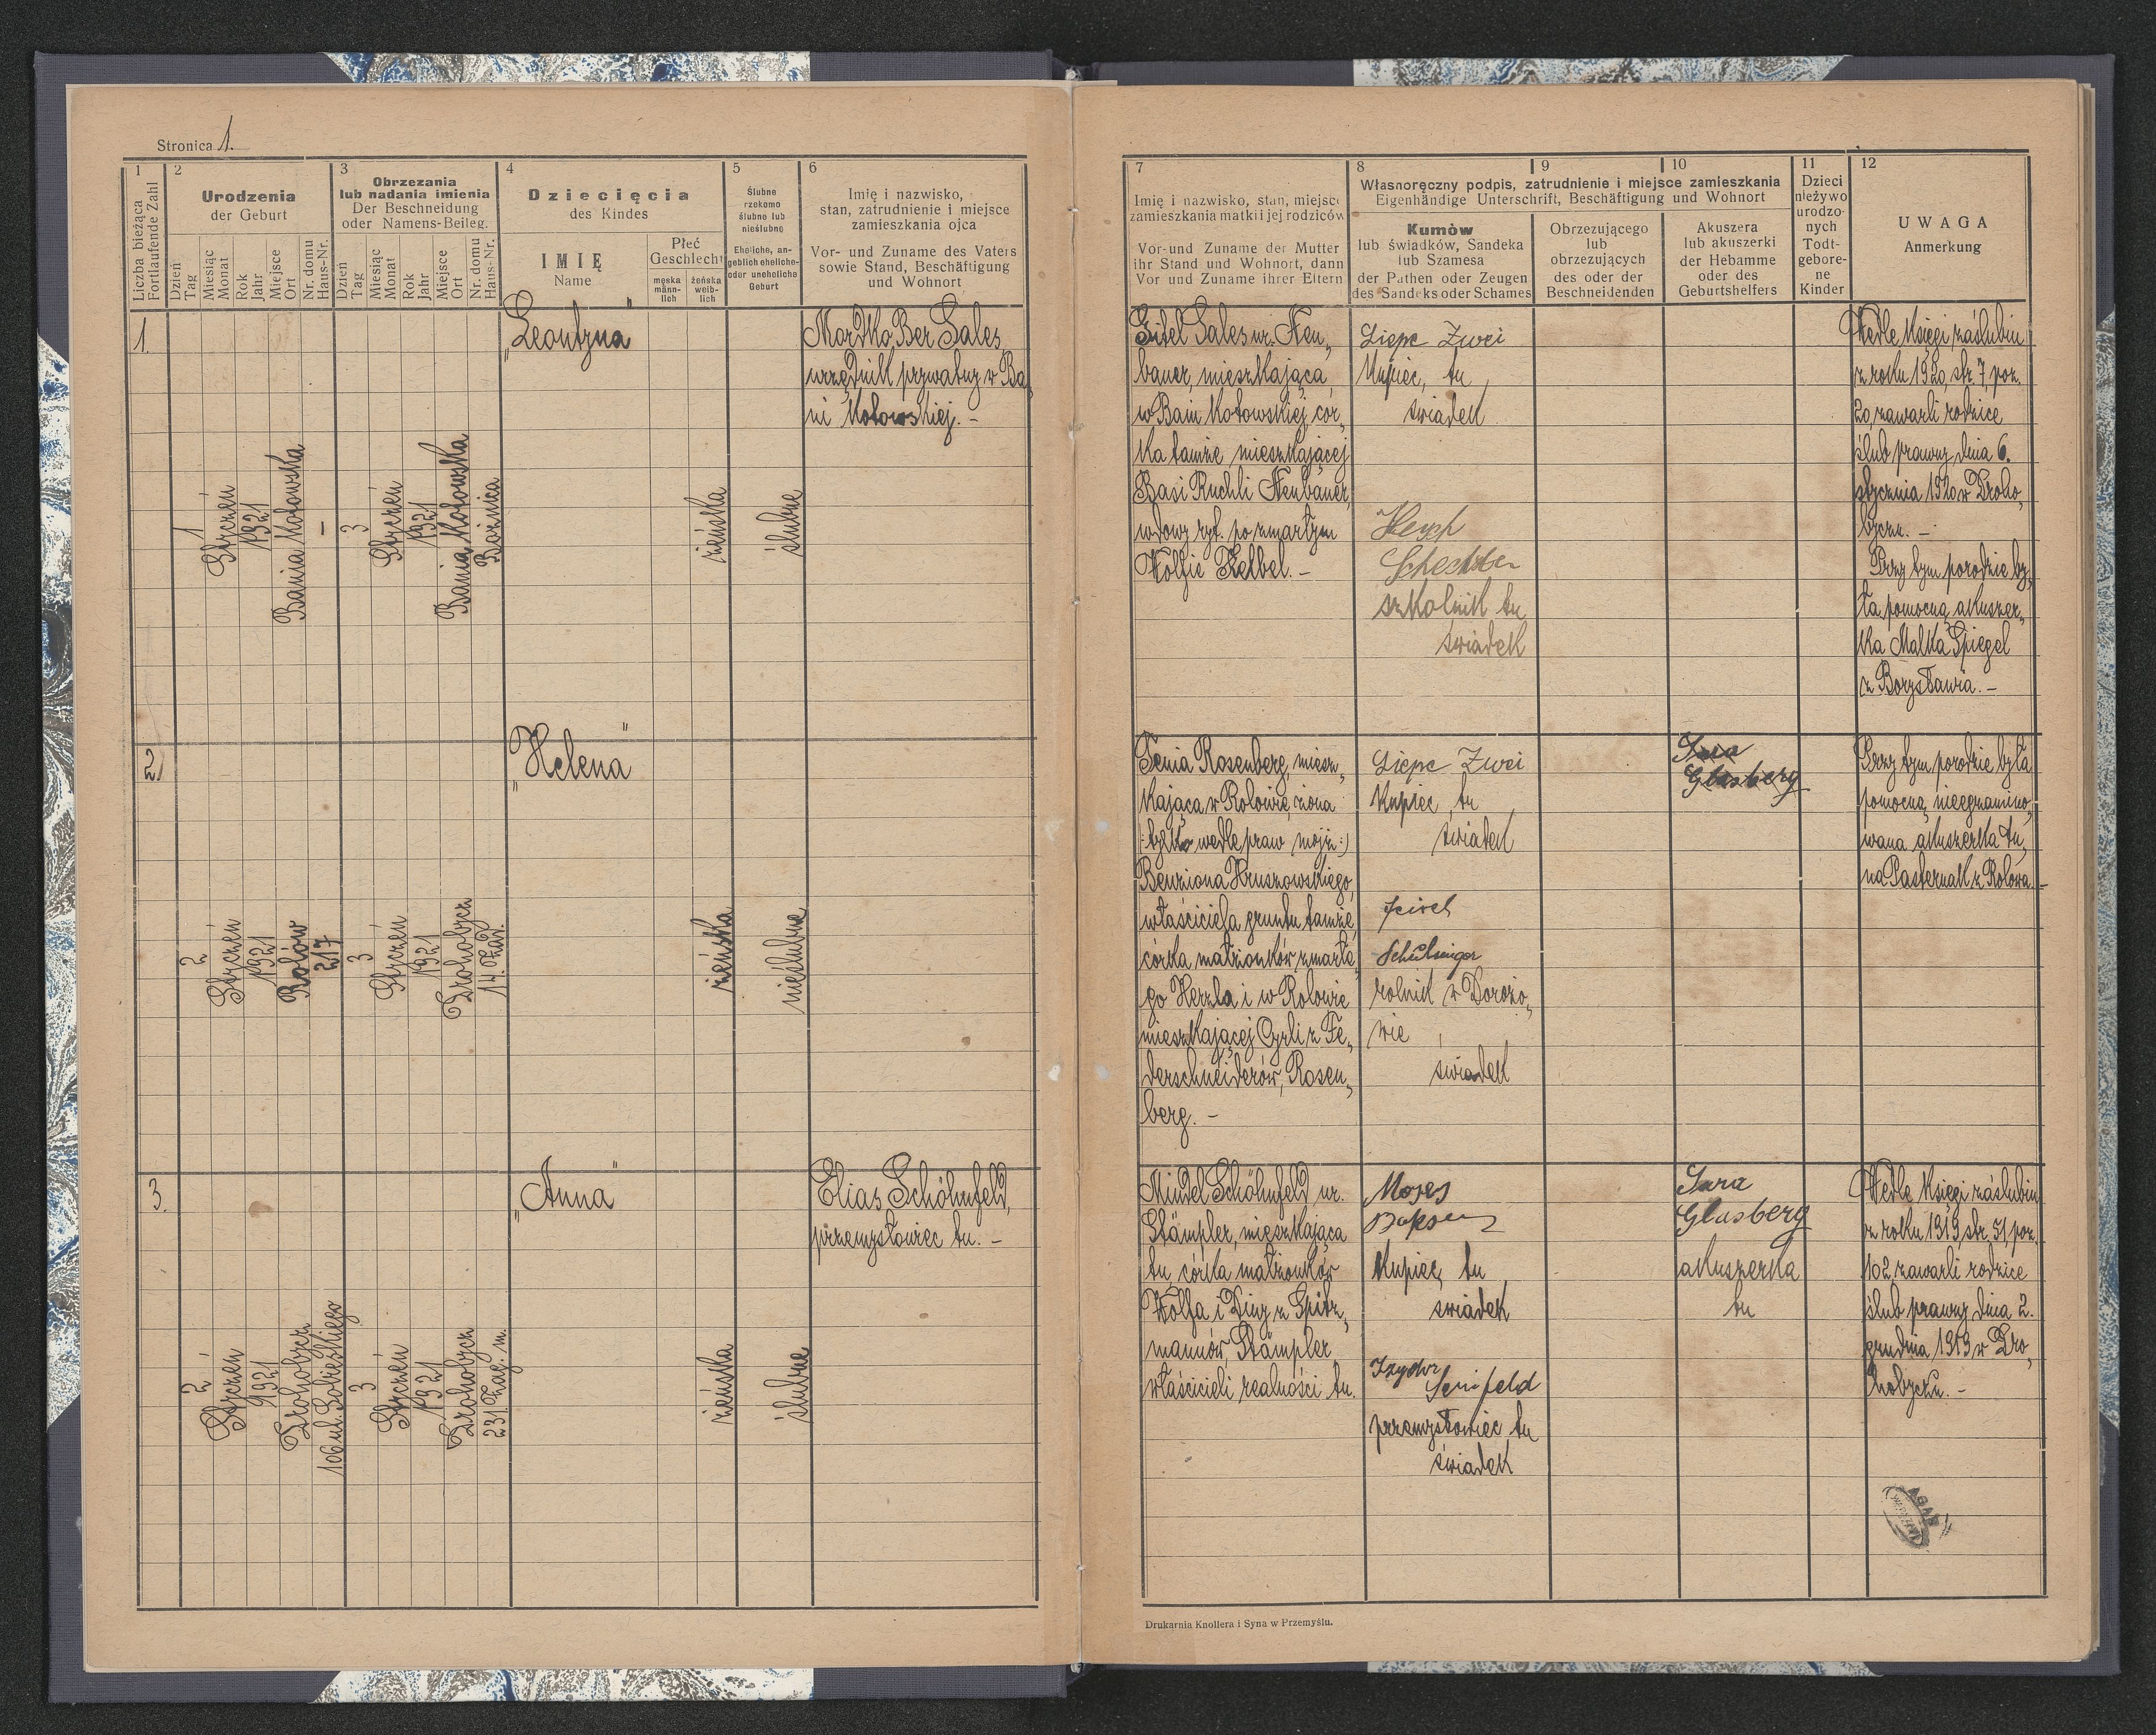 Stronica 1.
1
Liczba bieżąca
Fortlaufende Zahl
2
Urodzenia
der Geburt
Dzień
Tag
Miesiąc
Monat
Rok
Jahr
Miejsce
Ort
Nr. domu
Haus-Nr.
3
Obrzezania
lub nadania imienia
Der Beschneidung
oder Namens-Beileg.
Dzień
Tag
Miesiąc
Monat
Rok
Jahr
Miejsce
Ort
Nr. domu
Haus-Nr.
4
Dziecięcia
des Kindes
IMIĘ
Name
Płeć
Geschlecht
męska
männ-
lich
żeńska
weib-
lich
5
Ślubne
rzekomo
ślubne lub
nieślubne
Eheliche, an-
geblich eheliche-
oder uneheliche
Geburt
6
Imię i nazwisko,
stan, zatrudnienie i miejsce
zamieszkania ojca
Vor- und Zuname des Vaters
sowie Stand, Beschäftigung
und Wohnort
7
Imię i nazwisko, stan, miejsce
zamieszkania matki i jej rodziców
Vor-und Zuname der Mutter
ihr Stand und Wohnort, dann
Vor und Zuname ihrer Eltern
8
9
10
Własnoręczny podpis, zatrudnienie i miejsce zamieszkania
Eigenhändige Unterschrift, Beschäftigung und Wohnort
Kumów
lub świadków, Sandeka
lub Szamesa
der Pathen oder Zeugen
des Sandeks oder Schames
Obrzezującego
lub
obrzezujących
des oder der
Beschneidenden
Akuszera
lub akuszerki
der Hebamme
oder des
Geburtshelfers
11
Dzieci
nieżywo
urodzo-
nych
Todt-
gebore-
ne
Kinder
12
UWAGA
Anmerkung
1.
1
Styczeń
1921
Bania Kotowska
–
3
Styczeń
1921
Bania Kotowska
Bożnica
„Leontyna"
żeńska
ślubne
Mordko Ber Sales,
urzędnik prywatny w Ba„
ni Kotowskiej. –
Gitel Sales ur. Neu„
bauer, mieszkająca
w Bani Kotowskiej, cór„
ka tamże mieszkającej
Basi Ruchli Neubauer,
wdowy ryt. po zmarłym
Wolfie Felbel. –
Liepe Zwei
Kupiec, tu
świadek
Hersch
Schechter
szkolnik tu
świadek
Wedle Księgi zaślubin
z roku 1920, str. 7, poz.
20, zawarli rodzice
ślub prawny dnia 6.
stycznia 1920 w Droho„
byczu. –
Przy tym porodzie by„
ła pomocną akuszer„
ka Malka Spiegel
z Borysławia. –
2)
2
Styczeń
1921
Rolów
217
3
Styczeń
1921
Drohobycz
14. Zad.
„Helena"
żeńska
nieślubne
Fenia Rosenberg, miesz„
kająca w Rolowie, żona
(:tylko wedle praw mojż:)
Benziona Hruszowskiego,
właściciela gruntu tamże,
córka małżonków, zmarłe„
go Herzla i w Rolowie
mieszkającej Cyrli z Fe„
derschneiderów, Rosen„
berg. –
Liepe Zwei
Kupiec, tu
świadek
rolnik w Dorożo„
wie
świadek
Sara
Glasberg
Przy tym porodzie była
pomocną nieegzamino„
wana akuszerka An„
na Pasternak z Rolowa. –
3.
2
Styczeń
1921
Drohobycz
106 ul. Sobieskiego
3
Styczeń
1921
Drohobycz
231. Zag. m.
„Anna"
żeńska
ślubne
Elias Schöhnfeld,
przemysłowiec tu. –
Mindel Schöhnfeld ur.
Stämpler, mieszkająca
tu, córka małżonków
Wolfa i Diny z Spitz„
mannów, Stämpler,
właścicieli realności tu.
Moses
Kupiec, tu
świadek
Izydor
Senifeld
przemysłowiec, tu
świadek
Sara
Glasberg
akuszerka
tu
Wedle Księgi zaślubin
z roku 1919, str. 51, poz.
102, zawarli rodzice
ślub prawny dnia 2.
grudnia 1919 w Dro„
hobyczu. –
AGAD
Drukarnia Knollera i Syna w Przemyślu.